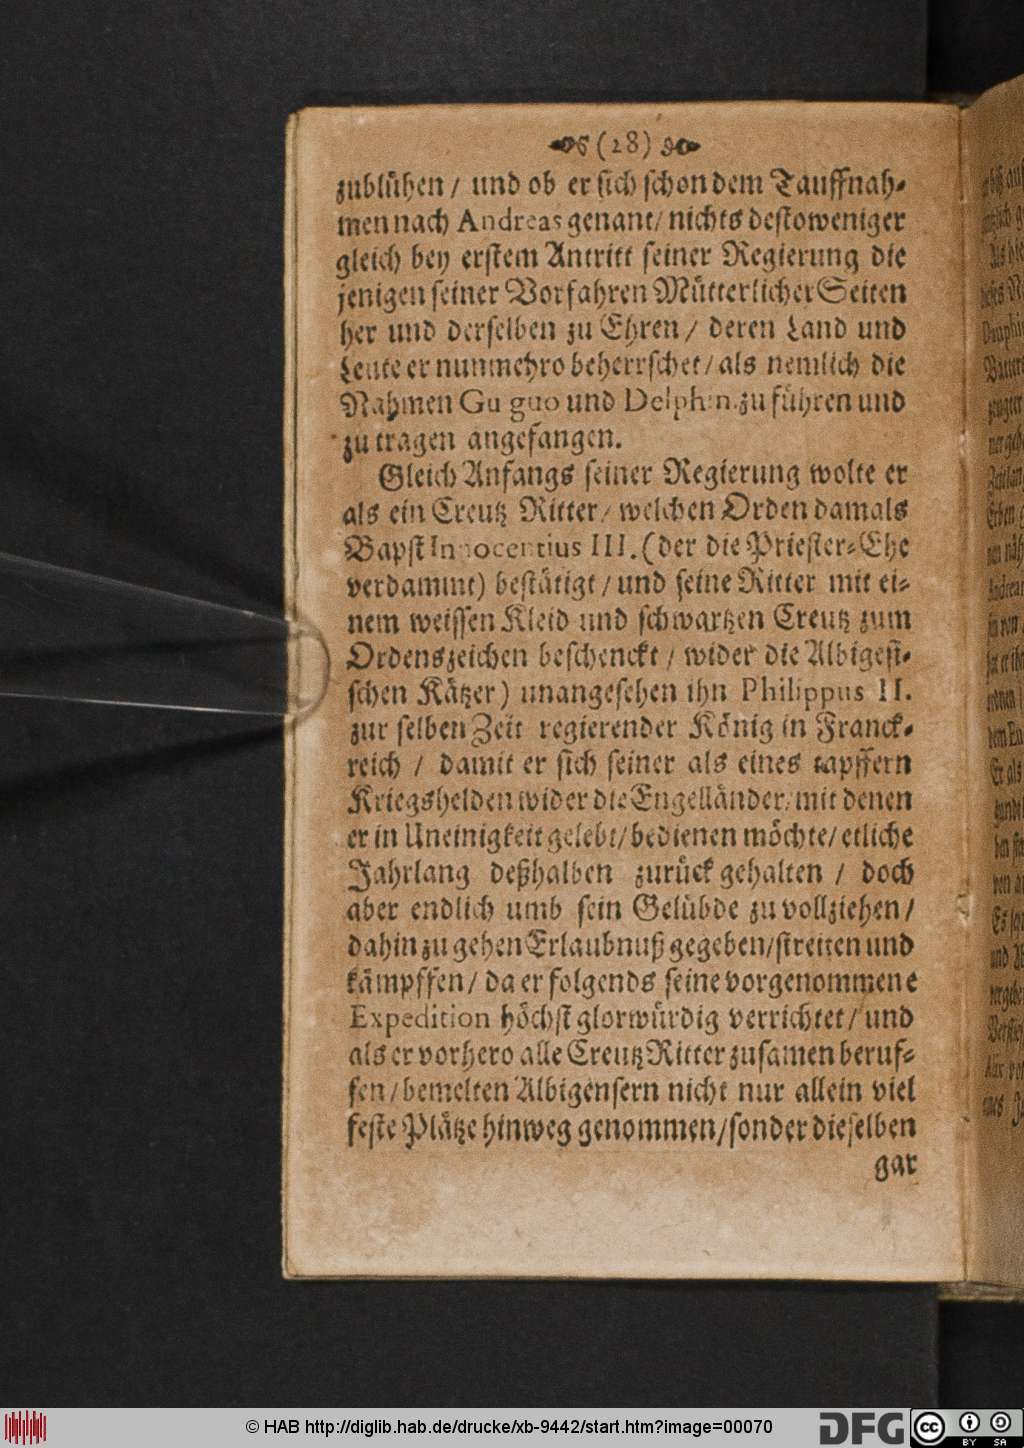 (28)
zublühen / und ob er sich schon dem Tauffnah-
men nach Andreas genant / nichts destoweniger
gleich bey erstem Antritt seiner Regierung die
jenigen seiner Vorfahren Mütterlicher Seiten
her und derselben zu Ehren / deren Land und
Leute er nunmehro beherrschet / als nemlich die
Nahmen Guiguo und Delphin zu führen und
zu tragen angefangen.
Gleich Anfangs seiner Regierung wolte er
als ein Creutz Ritter / welchen Orden damals
Bapst Innocentius III. (der die Priester-Ehe
verdammt) bestätigt / und seine Ritter mit ei-
nem weissen Kleid und schwartzen Creutz zum
Ordenszeichen beschenckt / wider die Albigesi-
schen Kätzer) unangesehen ihn Philippus II.
zur selben Zeit regierender König in Franck-
reich / damit er sich seiner als eines tapffern
Kriegshelden wider die Engelländer / mit denen
er in Uneinigkeit gelebt / bedienen möchte / etliche
Jahrlang deßhalben zurück gehalten / doch
aber endlich umb sein Gelübde zu vollziehen /
dahin zu gehen Erlaubnuß gegeben / streiten und
kämpffen / da er folgends seine vorgenommene
Expedition höchst glorwürdig verrichtet / und
als er vorhero alle Creutz Ritter zusamen beruf-
fen / bemelten Albigensern nicht nur allein viel
feste Plätze hinweg genommen / sonder dieselben
gar
© HAB http://diglib.hab.de/drucke/xb-9442/start.htm?image=00070
DFG
cc BY SA